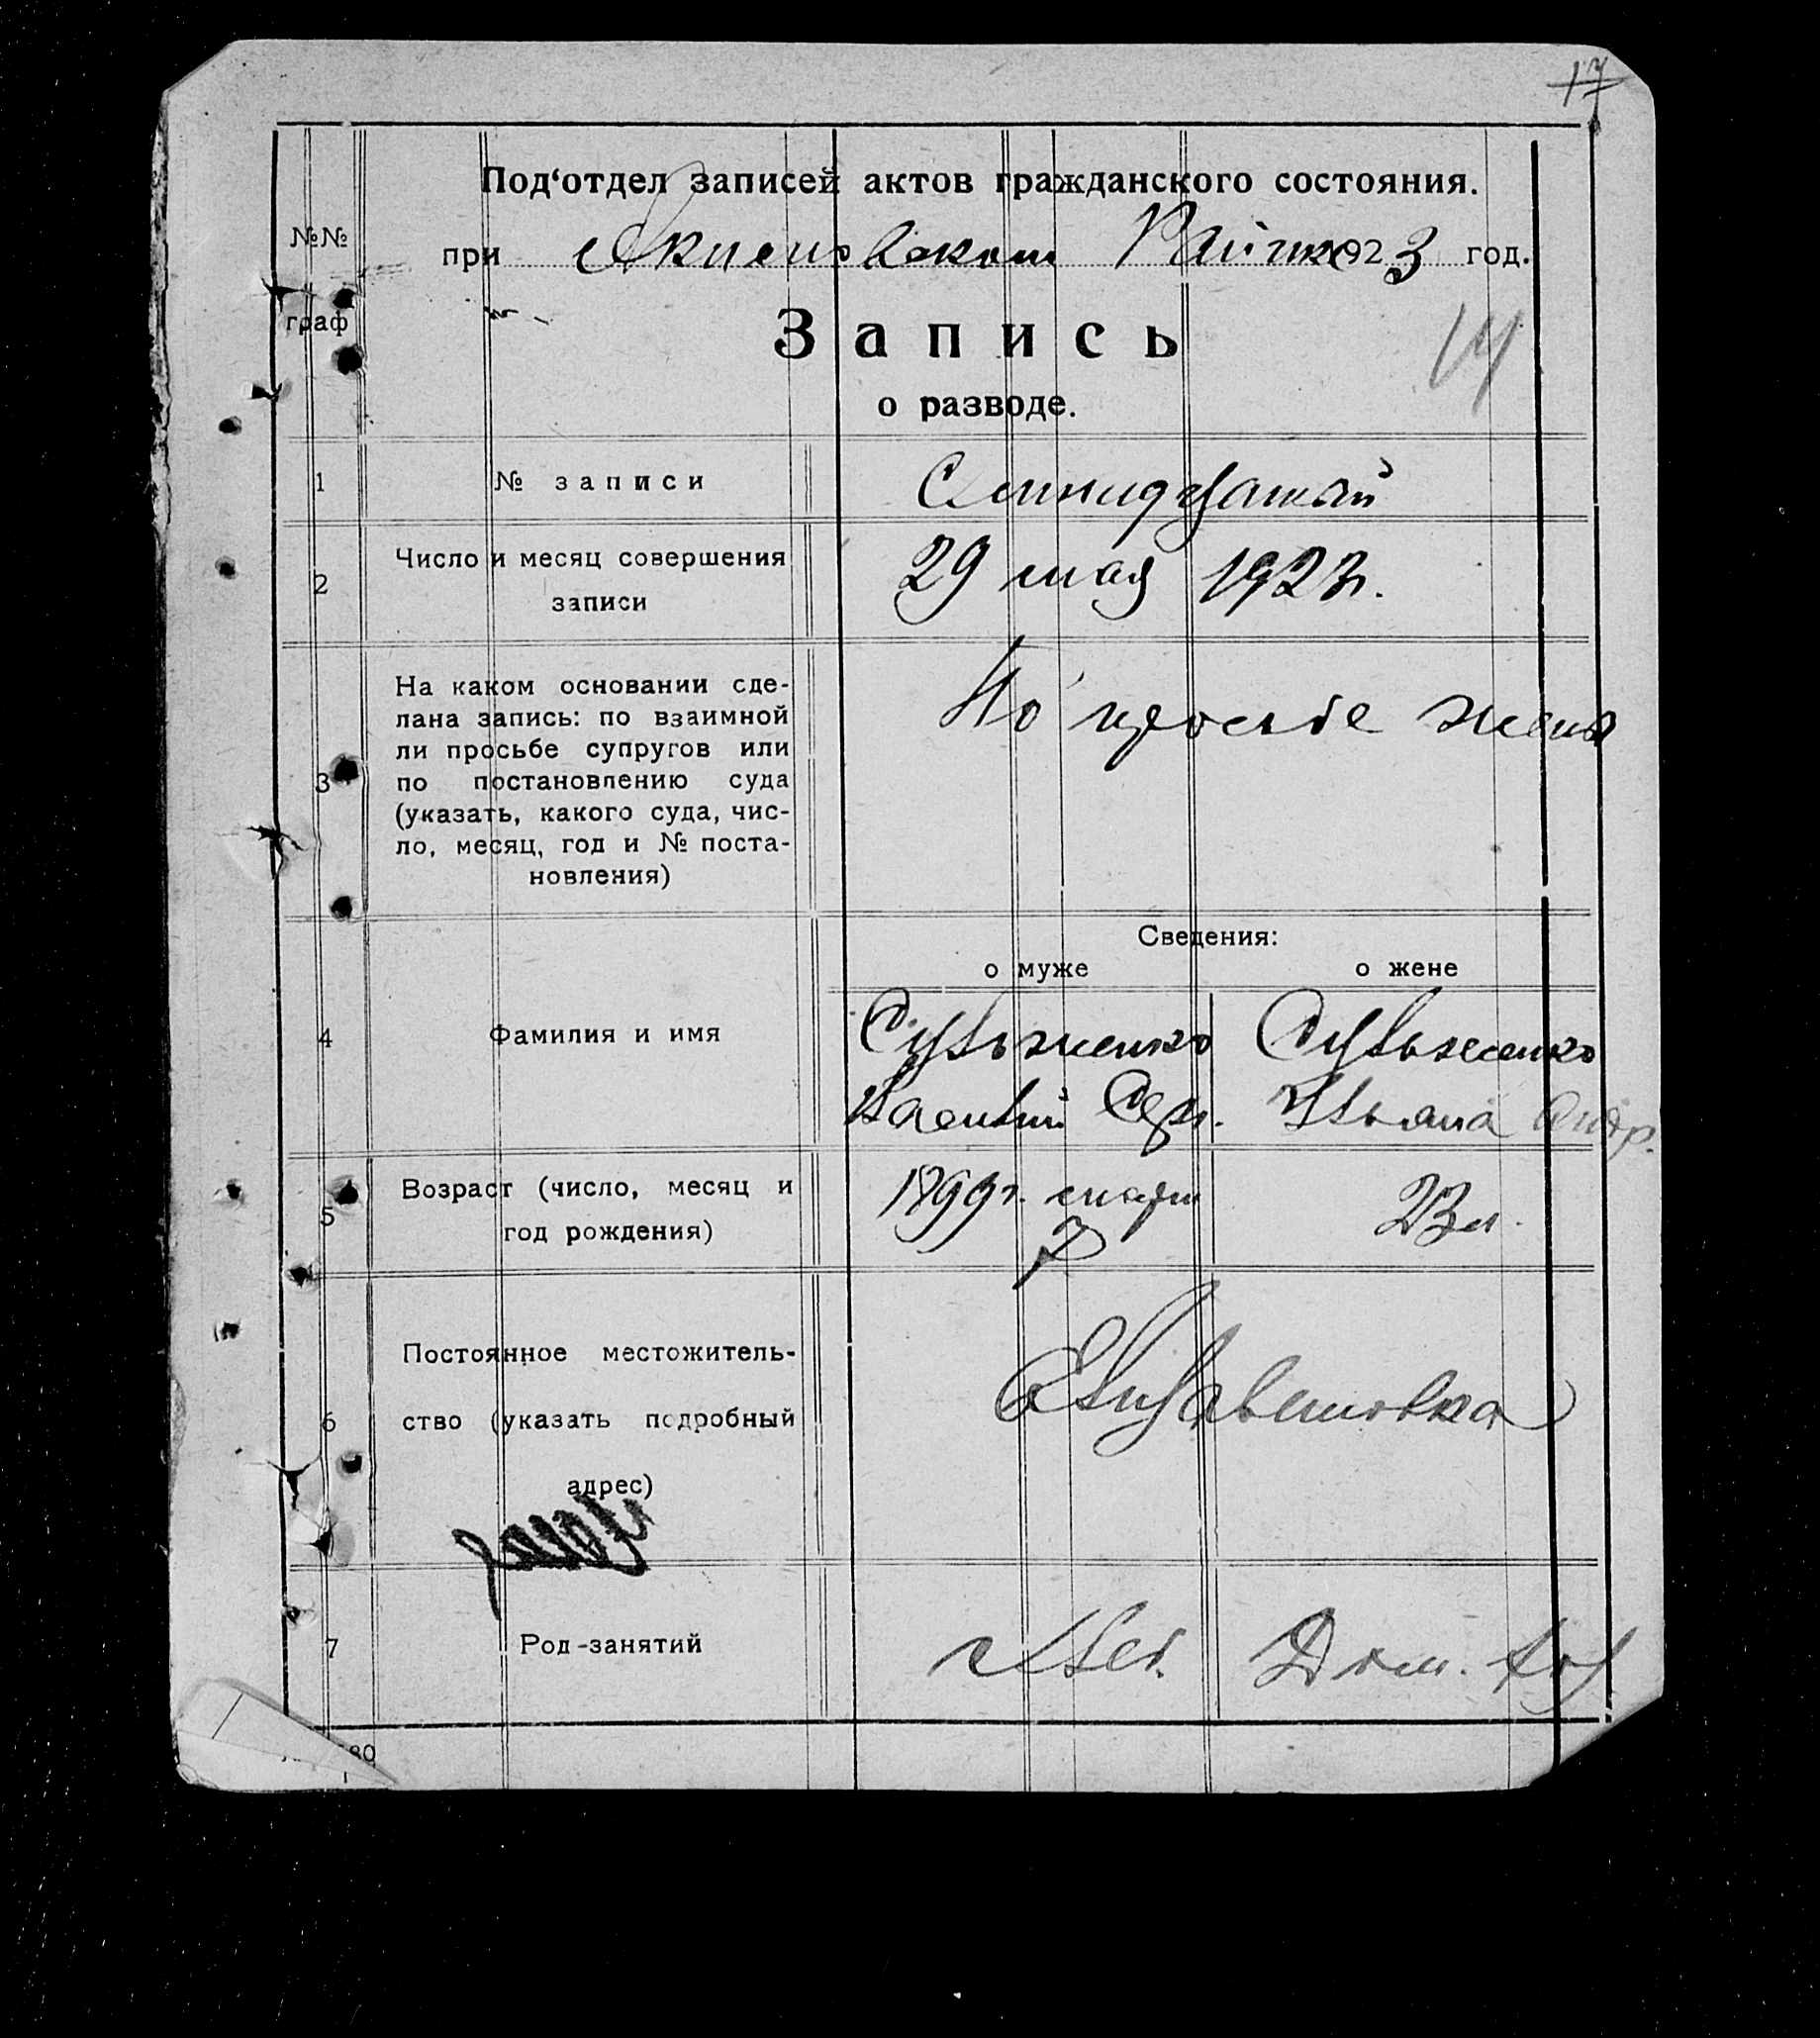 17
Под‘отдел записей актов гражданского состояния.
№№
граф
при Акимовском Райисп 1923 год.
Запись
14
о разводе.
1 № записи
2 Число и месяц совершения
записи
29 мая 1923г.
3 На каком основании сде-
лана запись: по взаимной
ли просьбе супругов или
по постановлению суда
(указать, какого суда, чис-
ло, месяц, год и № поста-
новления)
По просьбе жены
Сведения:
о муже о жене
4 Фамилия и имя
Сульженко Сульженко
Ульяна Андр.
5 Возраст (число, месяц и
год рождения)
1899г. март 23 л.
7
6 Постоянное местожитель-
ство (указать подробный
адрес)
Елизаветовка
7 Род-занятий
Хлеб. Дом. хоз.